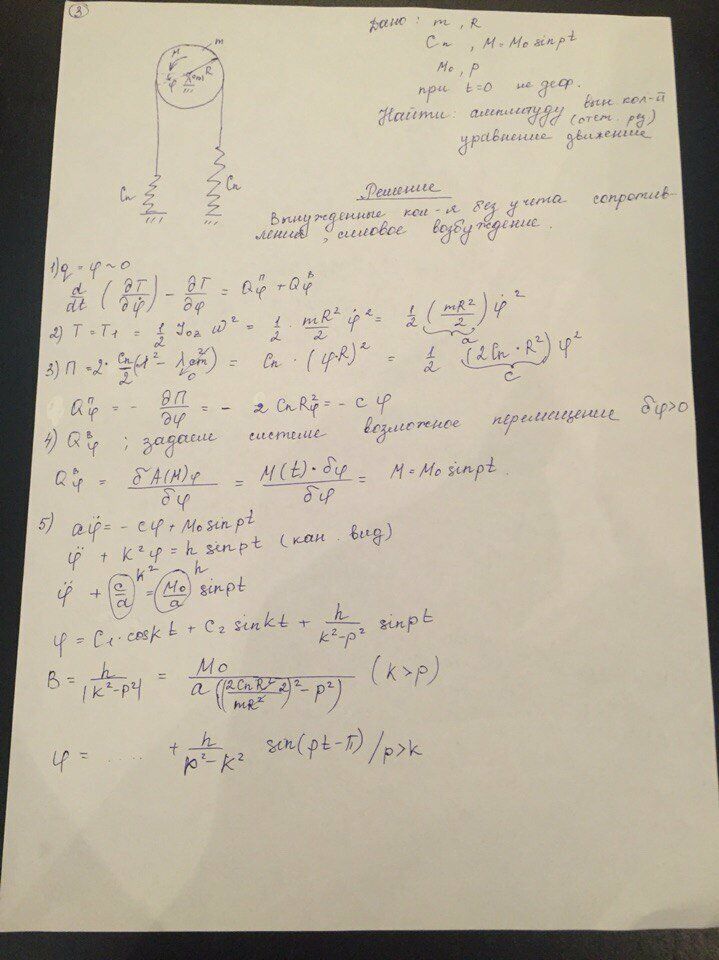 3
Дано: m, R
Cп, M = M₀ sin pt
M₀, p
при t=0 не деф.
Найти: амплитуду вын. кол-й
(отст. рез)
уравнение движение
M m R φ
Cп Cп
Решение
Вынужденные кол-я без учета сопротив-
ления, силовое возбуждение.
1) q = φ ~ 0
d/dt (∂T/∂φ̇) - ∂T/∂φ = Qφᴾ + Qφᴮ
2) T = T₁ = 1/2 J₀z ω² = 1/2 · mR²/2 φ̇² = 1/2 (mR²/2) φ̇²
a
3) П = 2 · Cп/2 (λ² - λcm²) = Cп · (φ·R)² = 1/2 (2Cп · R²) φ²
0 c
Qφᴾ = - ∂П/∂φ = - 2 CпR²φ = - c φ
4) Qφᴮ ; задаем системе возможное перемещение δφ>0
Qφᴮ = δA(M)φ/δφ = M(t)·δφ/δφ = M = M₀ sin pt.
5) aφ̈ = - cφ + M₀ sin pt
φ̈ + k²φ = h sin pt (кан. вид)
φ̈ + c/a k² = M₀/a h sin pt
φ = C₁·cos kt + C₂ sin kt + h/(k²-p²) sin pt
B = h/|k²-p²| = M₀/a((2CпR² 2/mR²)² - p²) (k>p)
φ = ..... + h/(p²-k²) sin(pt-π) / p>k